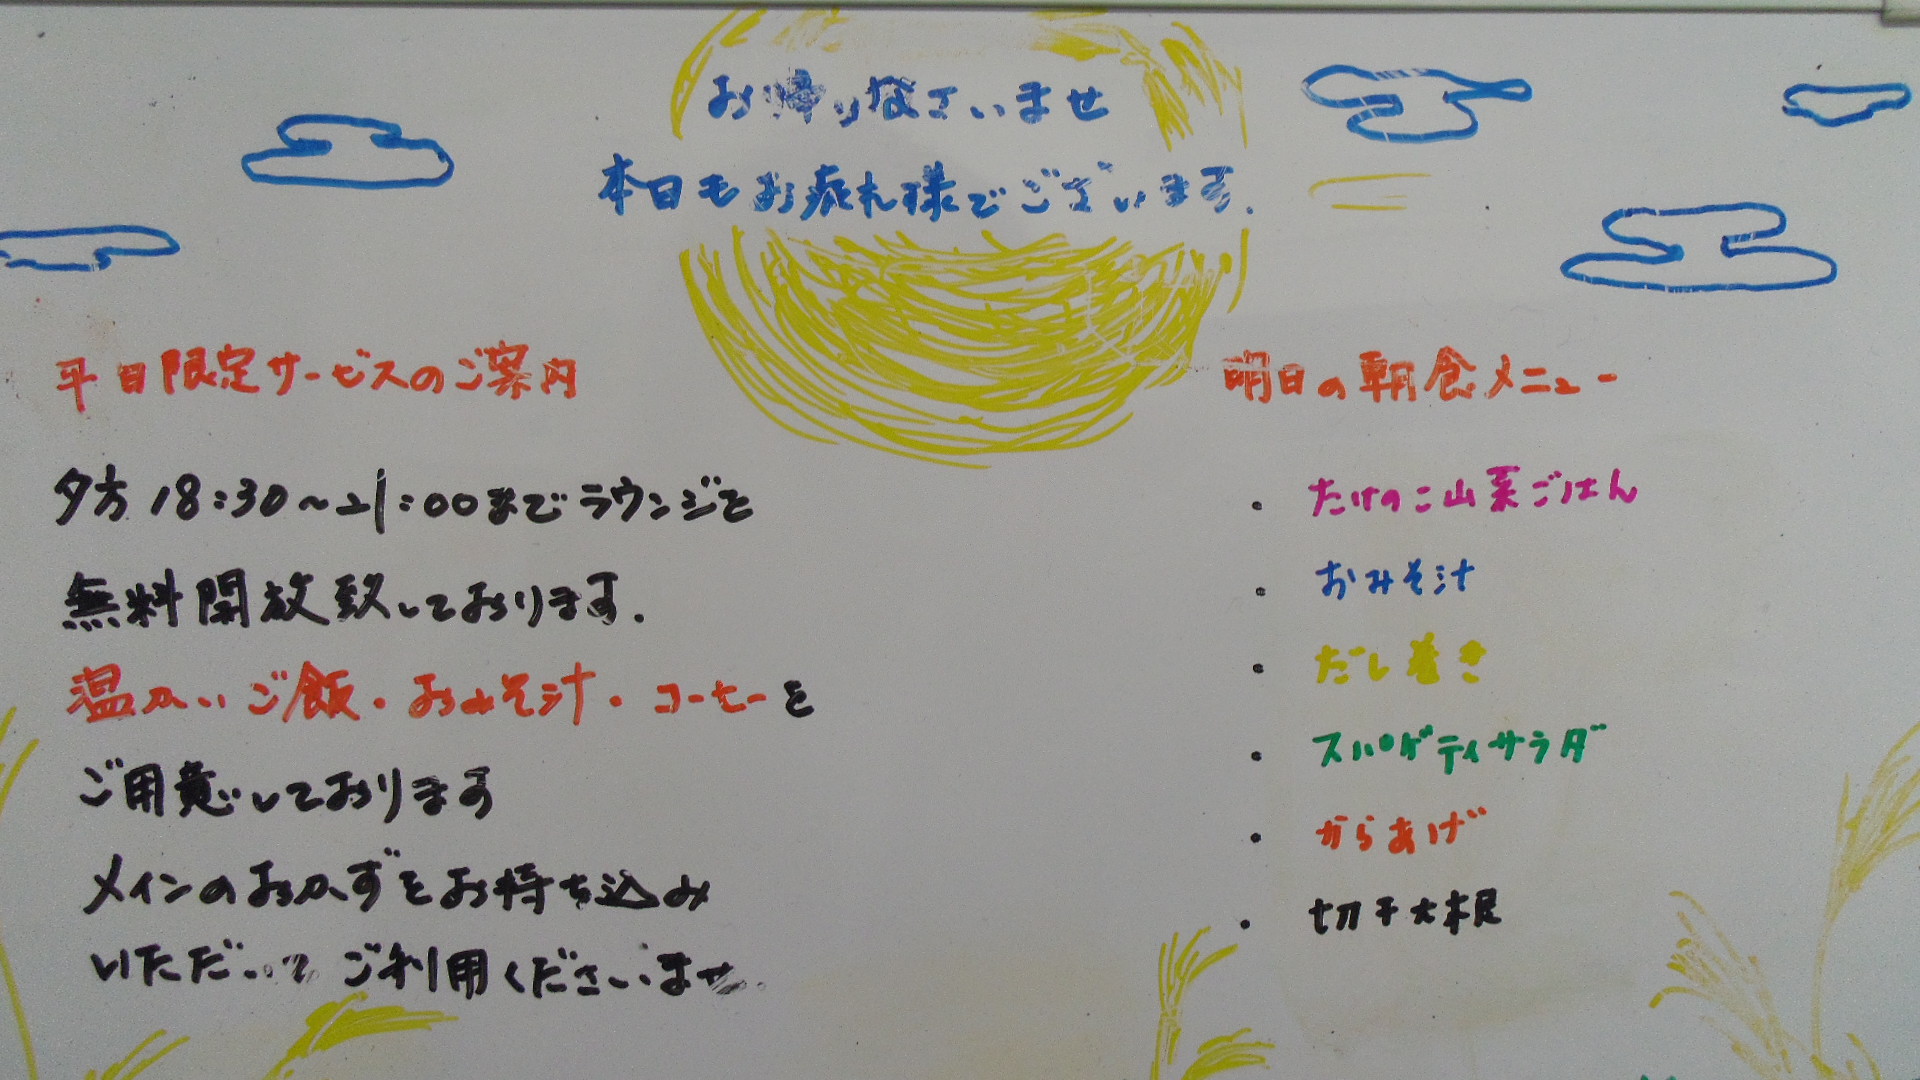 お帰りなさいませ
本日もお疲れ様でございます.
平日限定サービスのご案内
夕方 18:30~21:00までラウンジを
無料開放致しております.
温かいご飯・おみそ汁・コーヒーを
ご用意しております
メインのおかずをお持ち込み
いただいて ご利用くださいませ.
明日の朝食メニュー
・ たけのこ山菜ごはん
・ おみそ汁
・ だし巻き
・ スパゲティサラダ
・ からあげ
・ 切干大根